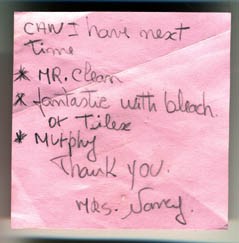 CAN I have next
time
* MR. Clean
* fantastic with bleach.
or Tilex
* Murphy
Thank you.
Mrs. Nancy.